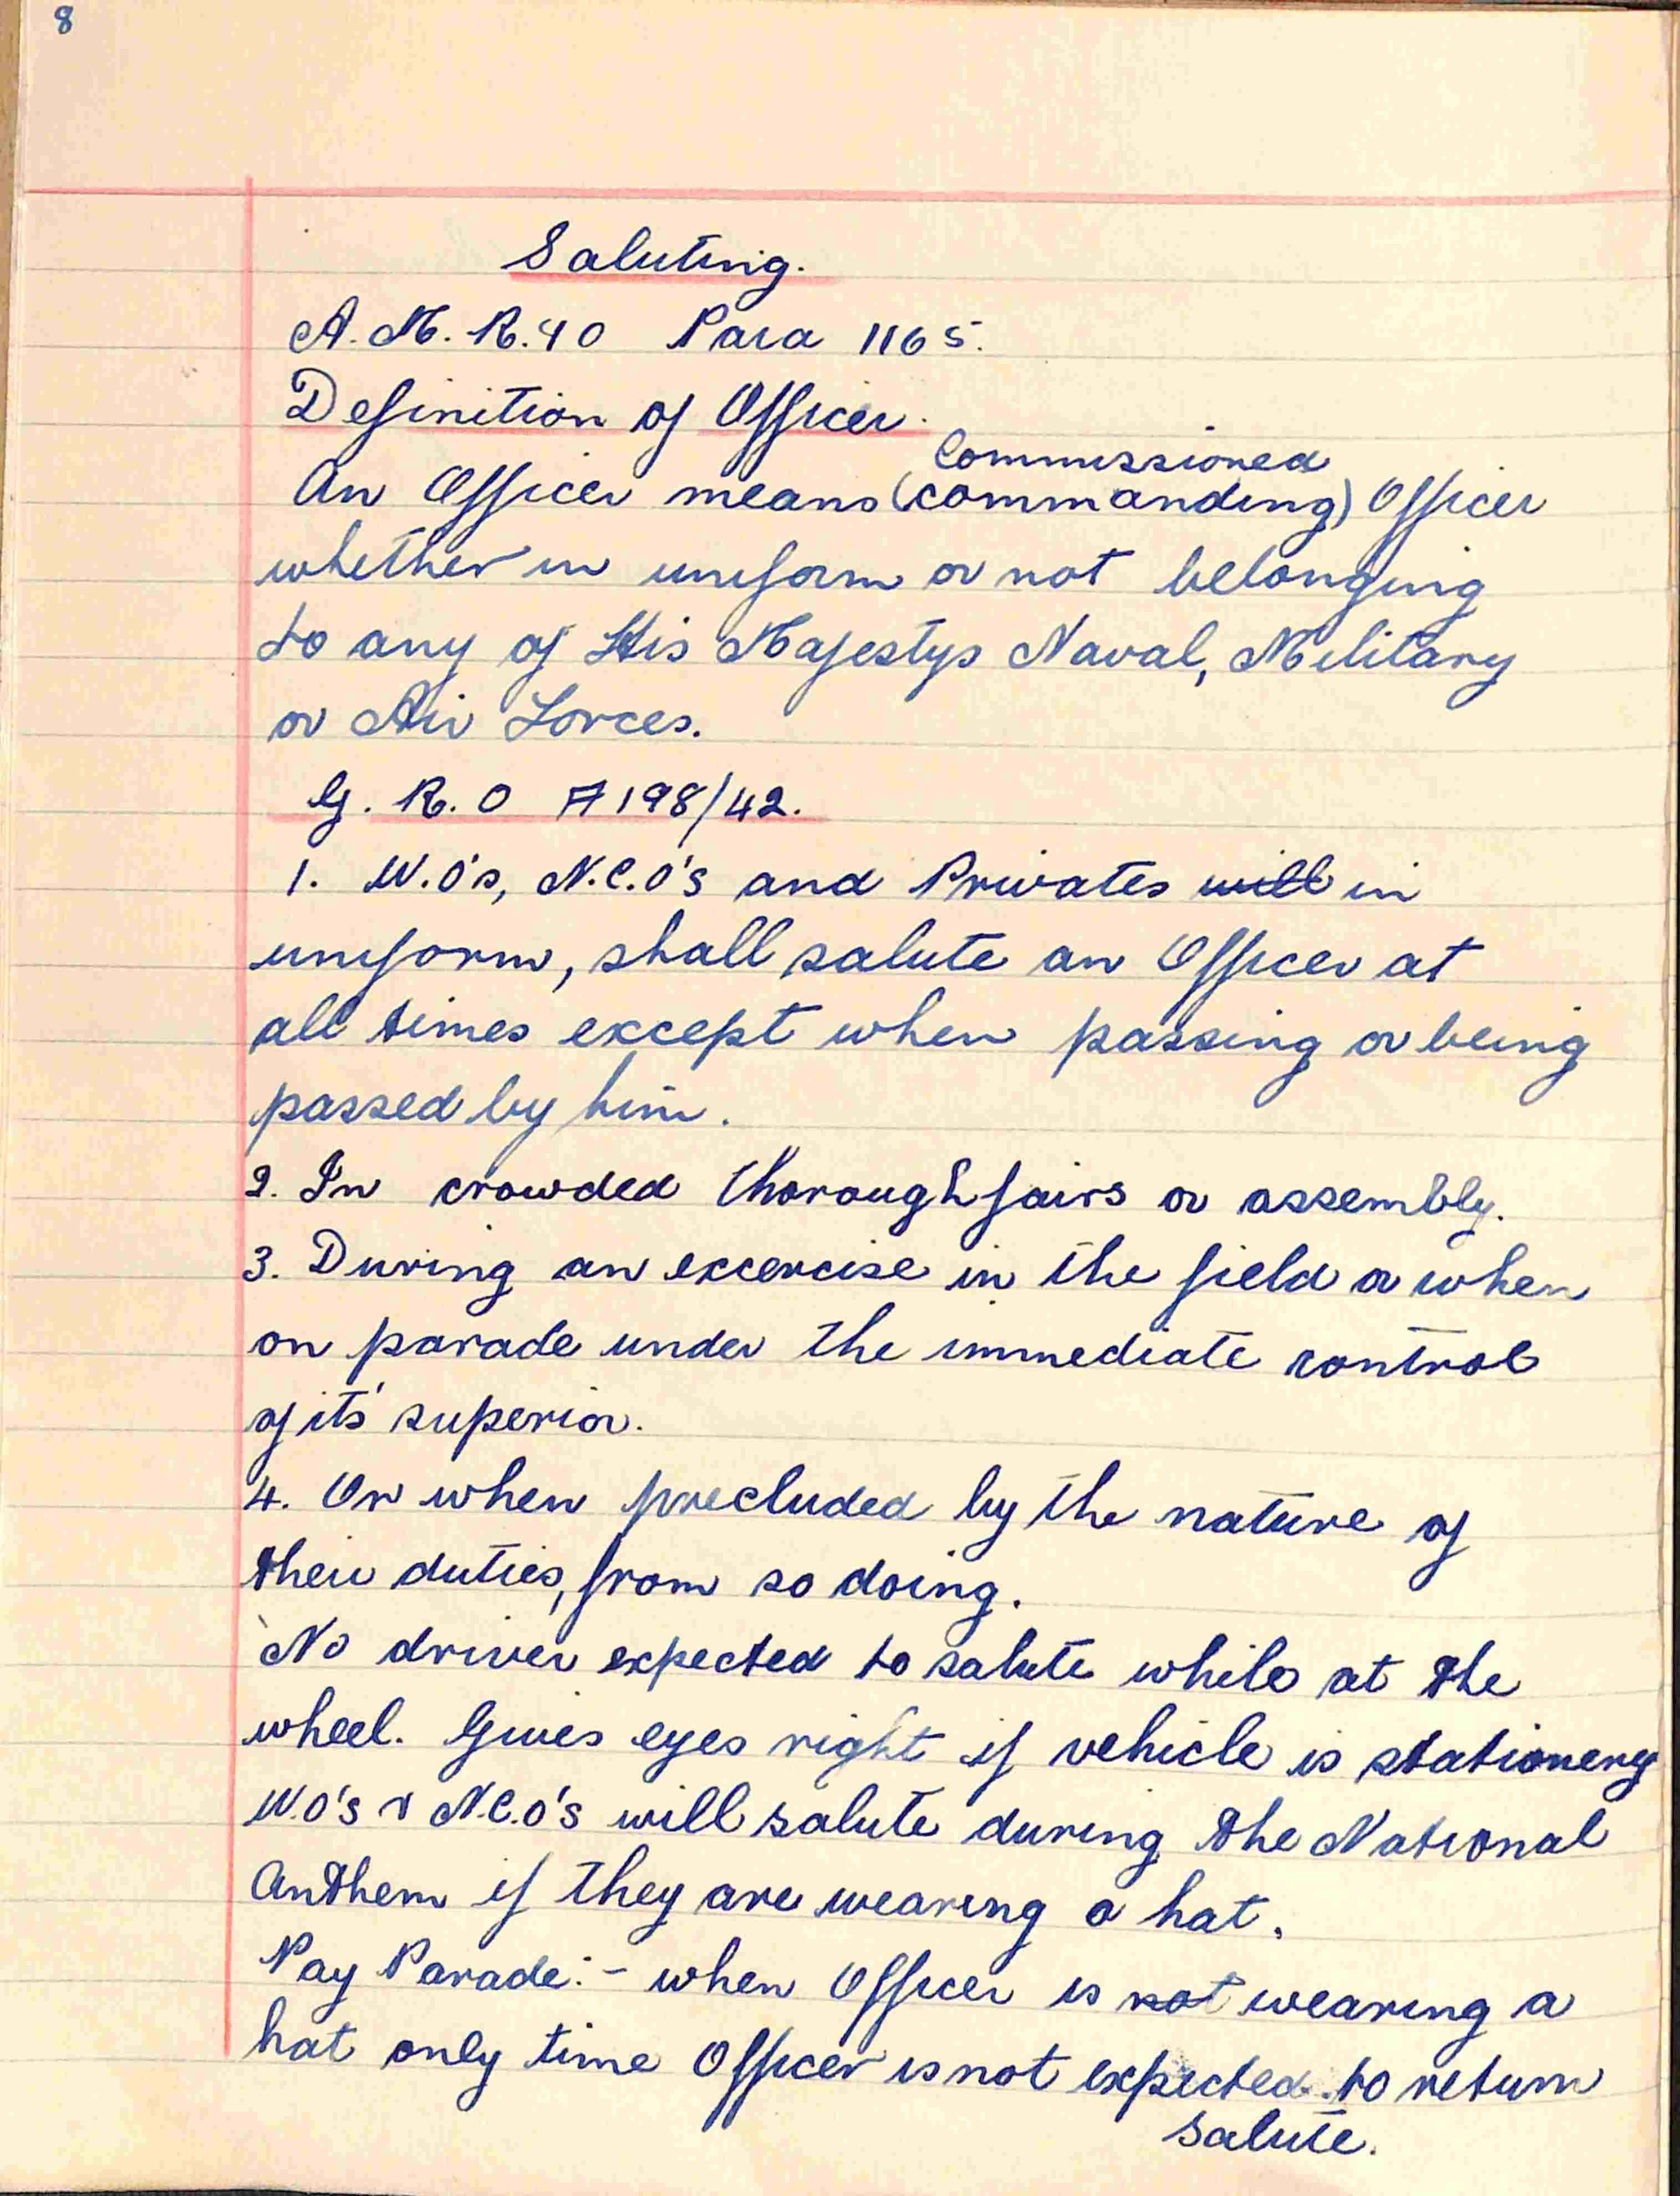 8
Saluting.
A.M.R.40 Para 1165.
Definition of Officer.
Commissioned
An Officer means (commanding) Officer
whether in uniform or not belonging
to any of His Majestys Naval, Military
or Air Forces.
G.R.O A198/42.
1. W.O's, N.C.O's and Privates will in
uniform, shall salute an Officer at
all times except when passing or being
passed by him.
2. In crowded thoroughfairs or assembly.
3. During an excercise in the field or when
on parade under the immediate control
of its' superior.
4. Or when precluded by the nature of
their duties, from so doing.
No driver expected to salute while at the
wheel. Gives eyes right if vehicle is stationery
W.O's & N.C.O's will salute during the National
Anthem if they are wearing a hat.
Pay Parade:- when Officer is not wearing a
hat only time Officer is not expected to return
salute.